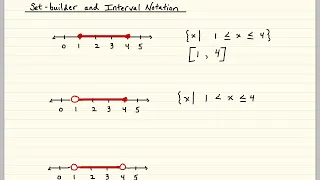 Set-builder and Interval Notation
0 1 2 3 4 5
{x| 1 ≤ x ≤ 4}
[1, 4]
0 1 2 3 4 5
{x| 1 < x ≤ 4
0 1 2 3 4 5